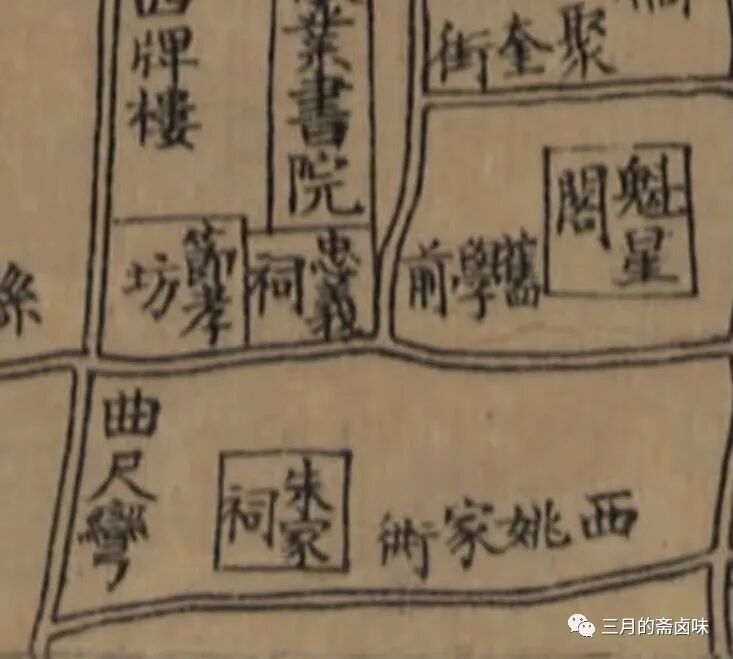 牌樓
業書院
聚奎街
魁星閣
舊學前
忠義祠
節孝坊
曲尺彎
朱家祠
西姚家衖
三月的斋卤味